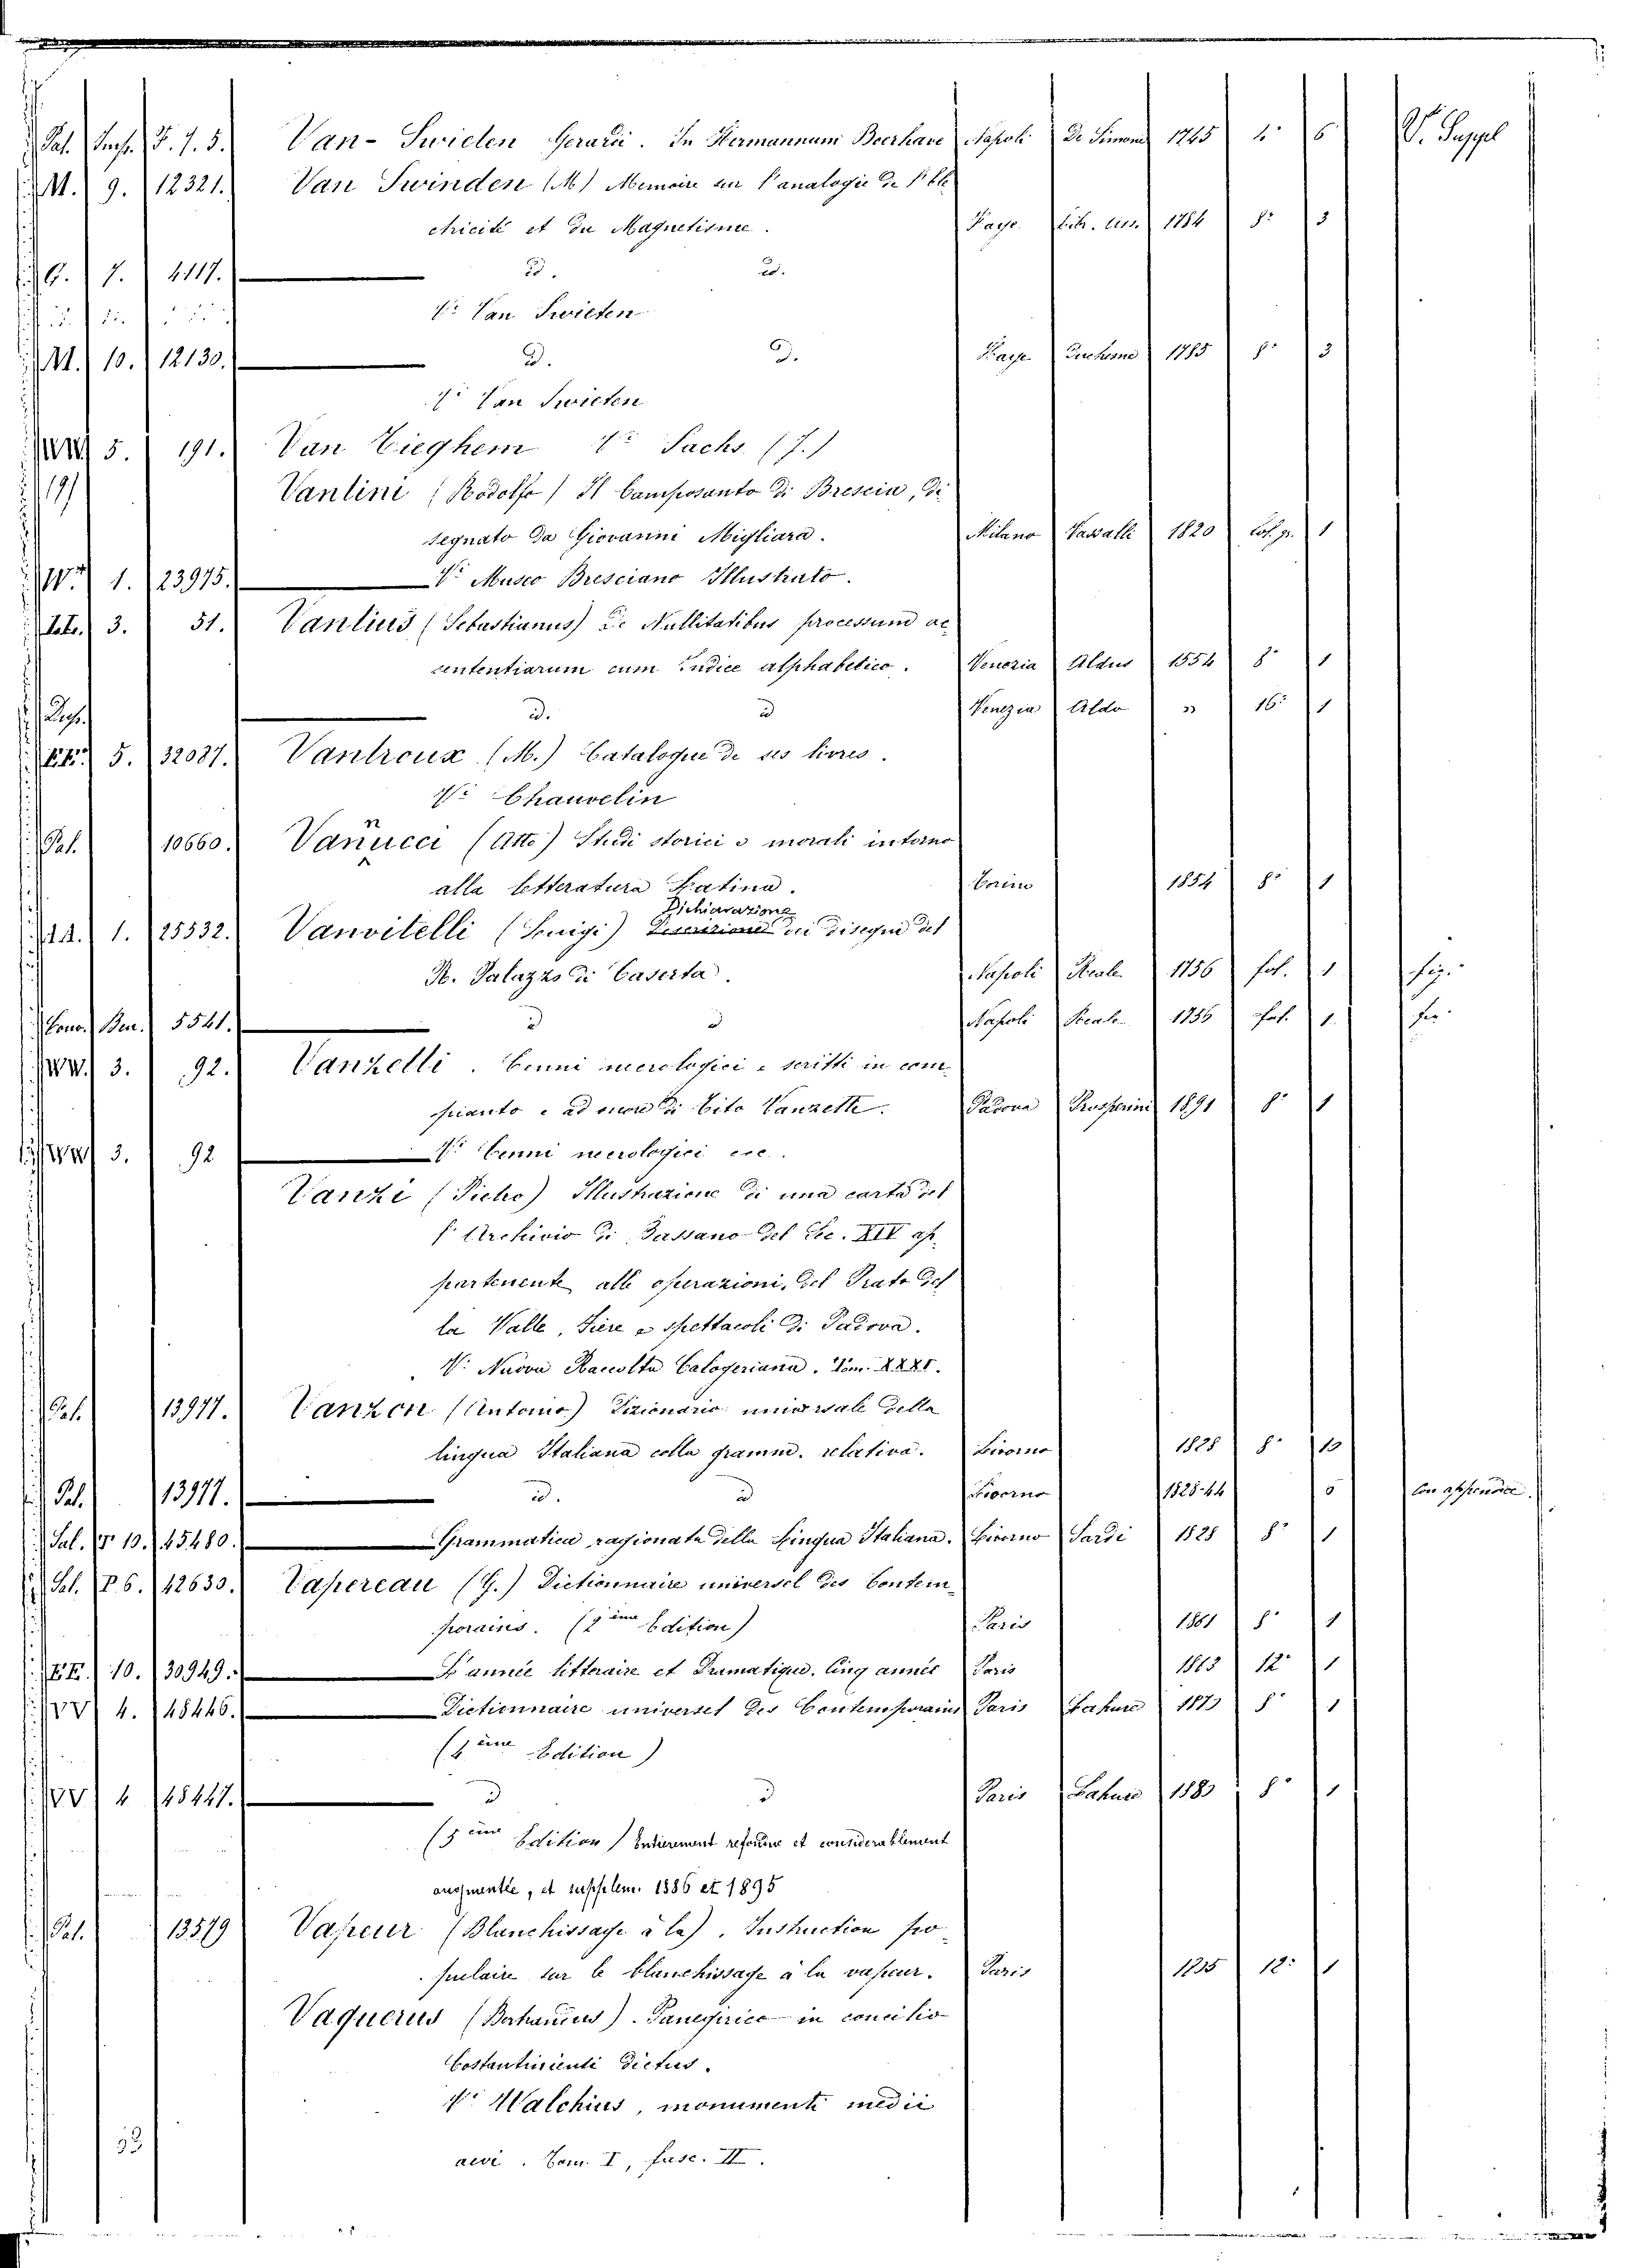 Pal. F. 7. 5. Van-Swieten Gerardi. In Hermannum Boerhave Napoli De Simone 1765 4° 6 V. Suppl
M. 9. 12321. Van Swinden (M) Memoire sur l'analogie de l'ele
ctricité et du Magnetisme. Haye 1784 8° 3
G. 7. 4117. id. id.
V° Van Swieten
M. 10. 12130. id. id. Haye 1785 8° 3
V° Van Swieten
5. 191. Van Tieghem V° Sachs (J.)
191 Vantini (Rodolfo) Il Camposanto di Brescia, di
segnato da Giovanni Migliara. Milano Vassalli 1820 fol. gr. 1
1. 23975. V° Museo Bresciano Illustrato.
3. 51. Vantius (Sebastianus) De Nullitatibus processum ac
sententiarum cum indice alphabetico. Venezia Aldus 1554 8° 1
id. id Venezia Aldo " 16° 1
5. 32087. Vantroux (M.) Catalogue de ses livres.
V° Chauvelin
Pal. 10660. Vanucci (Atto) Studi storici e morali intorno
alla letteratura Latina. Torino 1854 8° 1
Dichiarazione
1. 25532. Vanvitelli (Luigi) Descrizione dei disegni del
R. Palazzo di Caserta. Napoli Reale 1756 fol. 1 fig.
5541. id id Napoli Reale 1756 fol. 1. fig.
WW. 3. 92. Vanzelli. Cenni necrologici e scritti in com-
pianto e ad onore di Tito Vanzetti. Padova Prosperini 1891 8° 1
WW 3. 92 V° Cenni necrologici ecc.
Vanzi (Pietro) Illustrazione di una carta del
l'Archivio di Bassano del Sec. XIV ap-
partenente alle operazioni, del Prato del
la Valle, Fiere e spettacoli di Padova.
V. Nuova Raccolta Calogeriana. Tom. XXXI.
Pal. 13977. Vanzon (Antonio) Dizionario universale della
lingua Italiana colla gramm. relativa. Livorno 1828 8°
Pal. 13977. id. id Livorno 1828-44 Con appendice.
Sal. 10. 45480. Grammatica ragionata della Lingua Italiana. Livorno Sardi 1828 8° 1
Sal. P 6. 42630. Vapereau (G.) Dictionnaire universel des Contem-
porains. (2ème Edition) Paris 1861 8° 1
EE. 10. 30949. L'année litteraire et Dramatique. Cinq année Paris 1863 12° 1
VV 4. 48446. Dictionnaire universel des Contemporains Paris Lahure 1873 8° 1
(4ème Edition)
VV 4 48447. id id Paris Lahure 1880 8° 1
(5ème Edition) Entierement refondue et considerablement
augmentée, et supplem. 1886 et 1895
Pal. 13579 Vapeur (Blanchissage à la). Instruction po-
pulaire sur le blanchissage à la vapeur. Paris 1835 12° 1
Vaquerus (Bertrandus). Panegirico in concilio
Costantiensi dictus.
V° Walchius, monumenti medii
aevi. Tom. I, fasc. II.
33